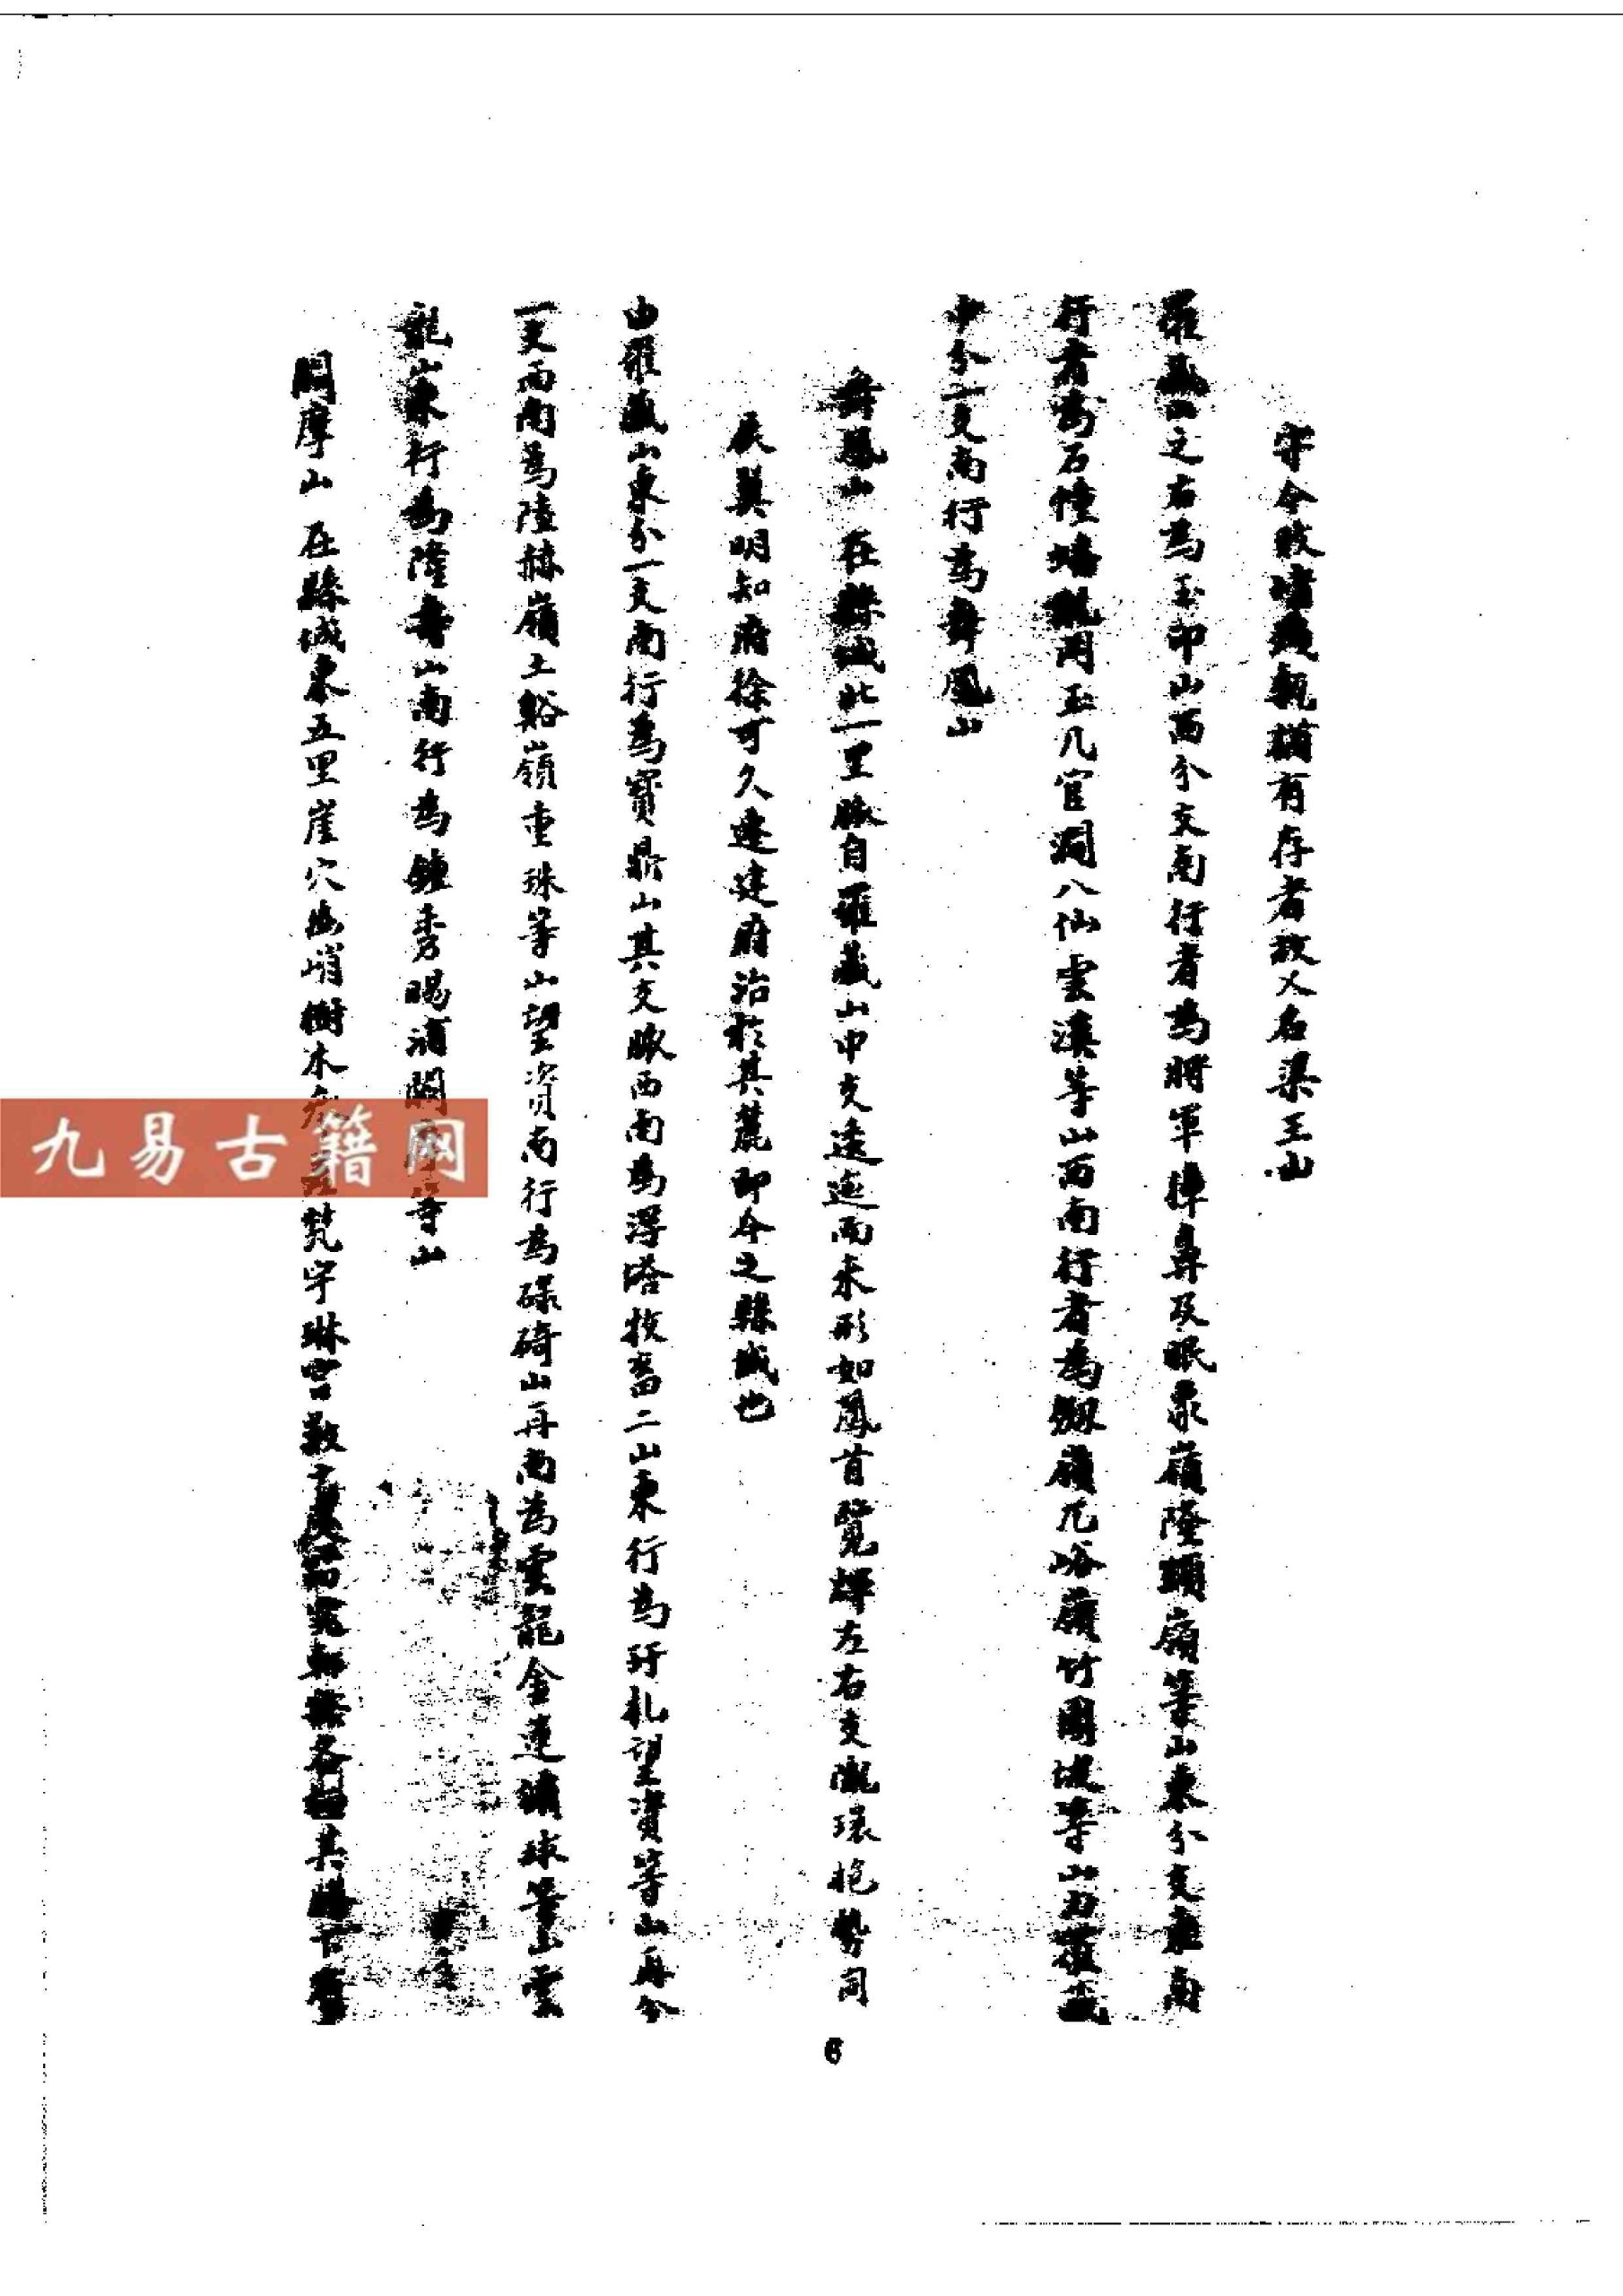 守今敗堵殘瓴猶有存者故又名梁王山
羅藏山之右為玉印山西分支南行者為將軍摔鼻及眠象嶺隆 嶺等山東分支東南
行者為石幢蟠龍周玉几官澗八仙雲溪等山西南行者為 嶺 峪嶺竹園坡等山力羅藏
中分一支南行為舞鳳山
舞鳳山 在縣城北一里脈自羅藏山中支逶迤而來形如鳳首覽輝左右支隴環抱勢同
展翼明知府徐可久遷建府治於其麓即今之縣城也
由羅藏山東分一支南行為寶鼎山其支脈西南為浮塔牧畜二山東行為 札望資等山再分
一支西南為陸赫嶺土谿嶺重珠等山望資南行為碌碕山再南為雲龍金蓮繡球等山雲
龍山東行為隆壽山南行為鍾秀賜浦關 等山
關摩山 在縣城東五里崖穴 峭樹木 梵宇琳宮數 各 其勝
6
九易古籍网